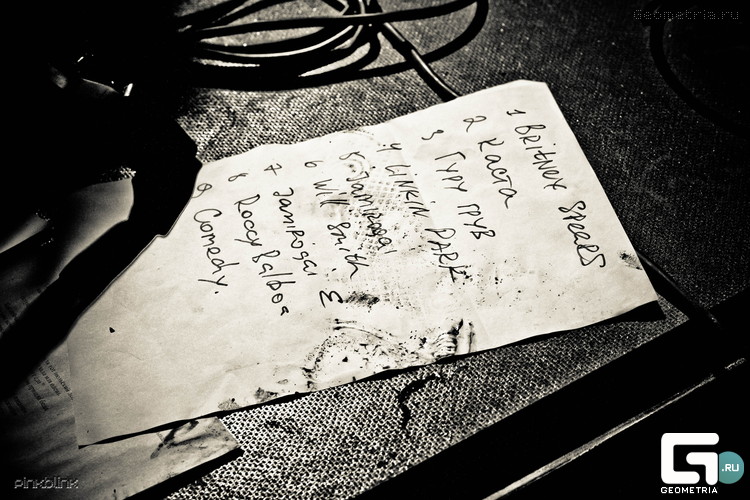 Geometria.ru
1 BRiTNEY SPEARS
2 Каста
3 ГУРУ ГРУВ
4 LiNKiN PARK
5 Jamiroqai
6 Will Smith
7 Jamiroqai Е
8 Roccy Balboa
9 Comedy.
pinkblink
G .RU
GEOMETRIA